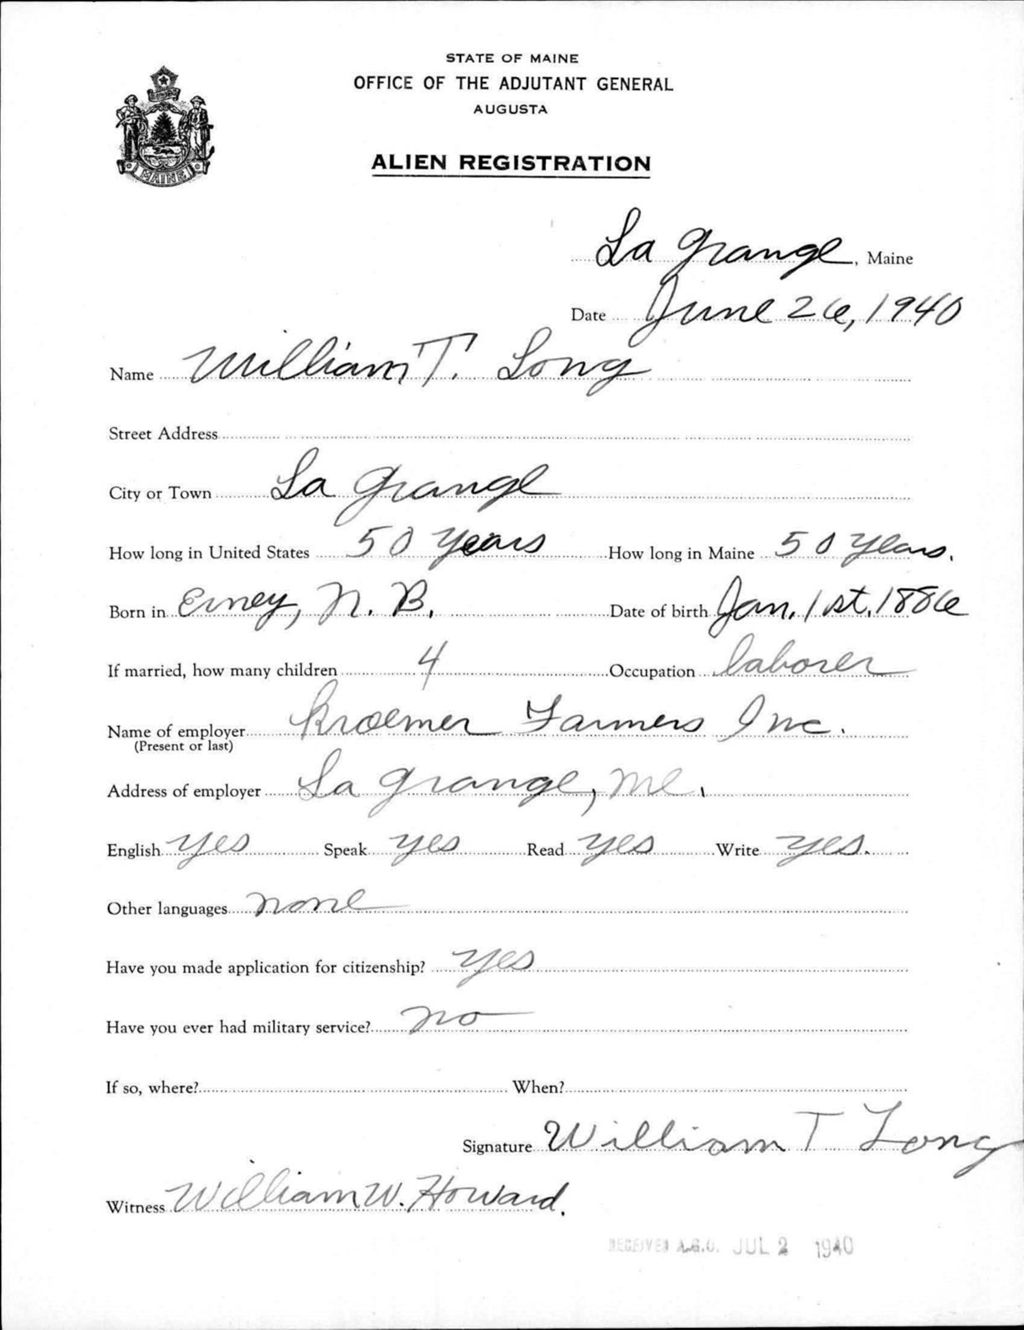 STATE OF MAINE
OFFICE OF THE ADJUTANT GENERAL
AUGUSTA
ALIEN REGISTRATION
MAINE
La Grange, Maine
Date June 26, 1940
Name William T. Long
Street Address
City or Town La Grange
How long in United States 50 Years How long in Maine 50 Years.
Born in Erney, N. B. Date of birth Jan. 1st, 1886
If married, how many children 4 Occupation laborer
Name of employer Kroemer Farmers Inc.
(Present or last)
Address of employer La Grange, Me.
English yes Speak yes Read yes Write yes.
Other languages none
Have you made application for citizenship? yes
Have you ever had military service? no
If so, where? When?
Signature William T Long
Witness William W. Howard.
RECEIVED A.G.O. JUL 2 1940